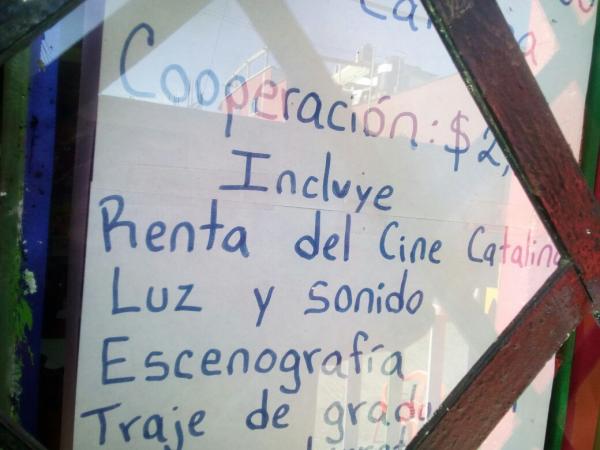 Cooperación: $2,
Incluye
Renta del Cine Catalina
Luz y sonido
Escenografía
Traje de gradu